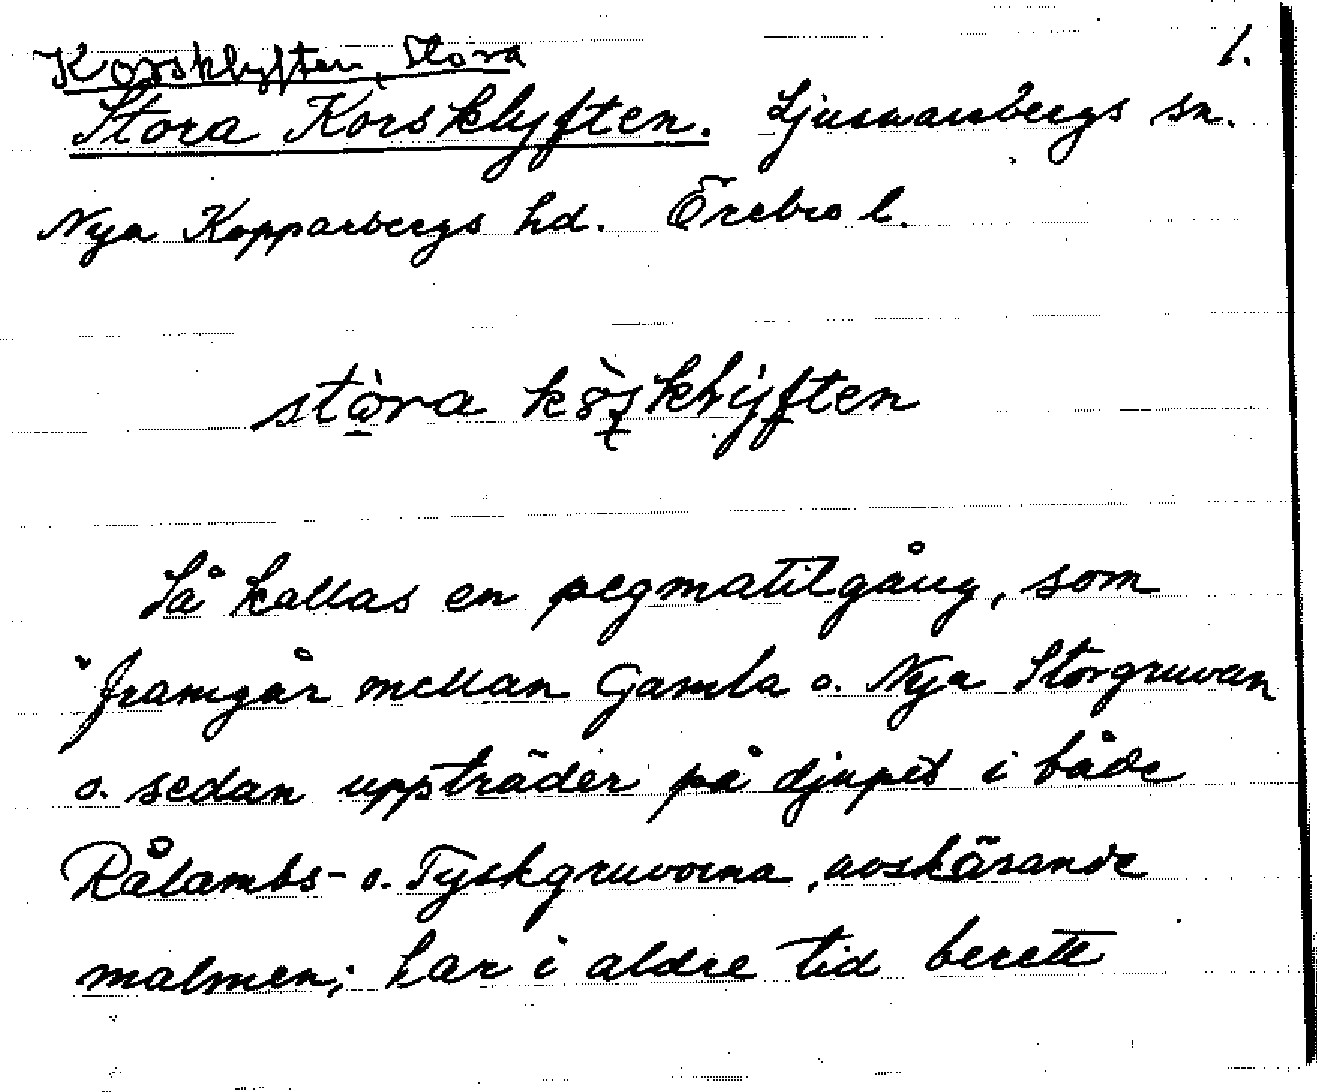 Korsklyften, Stora
1.
Stora Korsklyften. Ljusnarsbergs sn.
Nya Kopparbergs hd. Örebro l.
stòra kòsklyften
Så kallas en pegmatitgång, som
framgår mellan Gamla o. Nya Storgruvan
o. sedan uppträder på djupet i både
Rålambs- o. Tyskgruvorna, avskärande
malmen; har i äldre tid berett